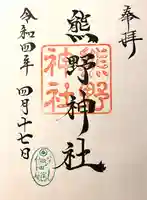 奉拝
熊野神社
熊野
神社
令和四年 四月十七日